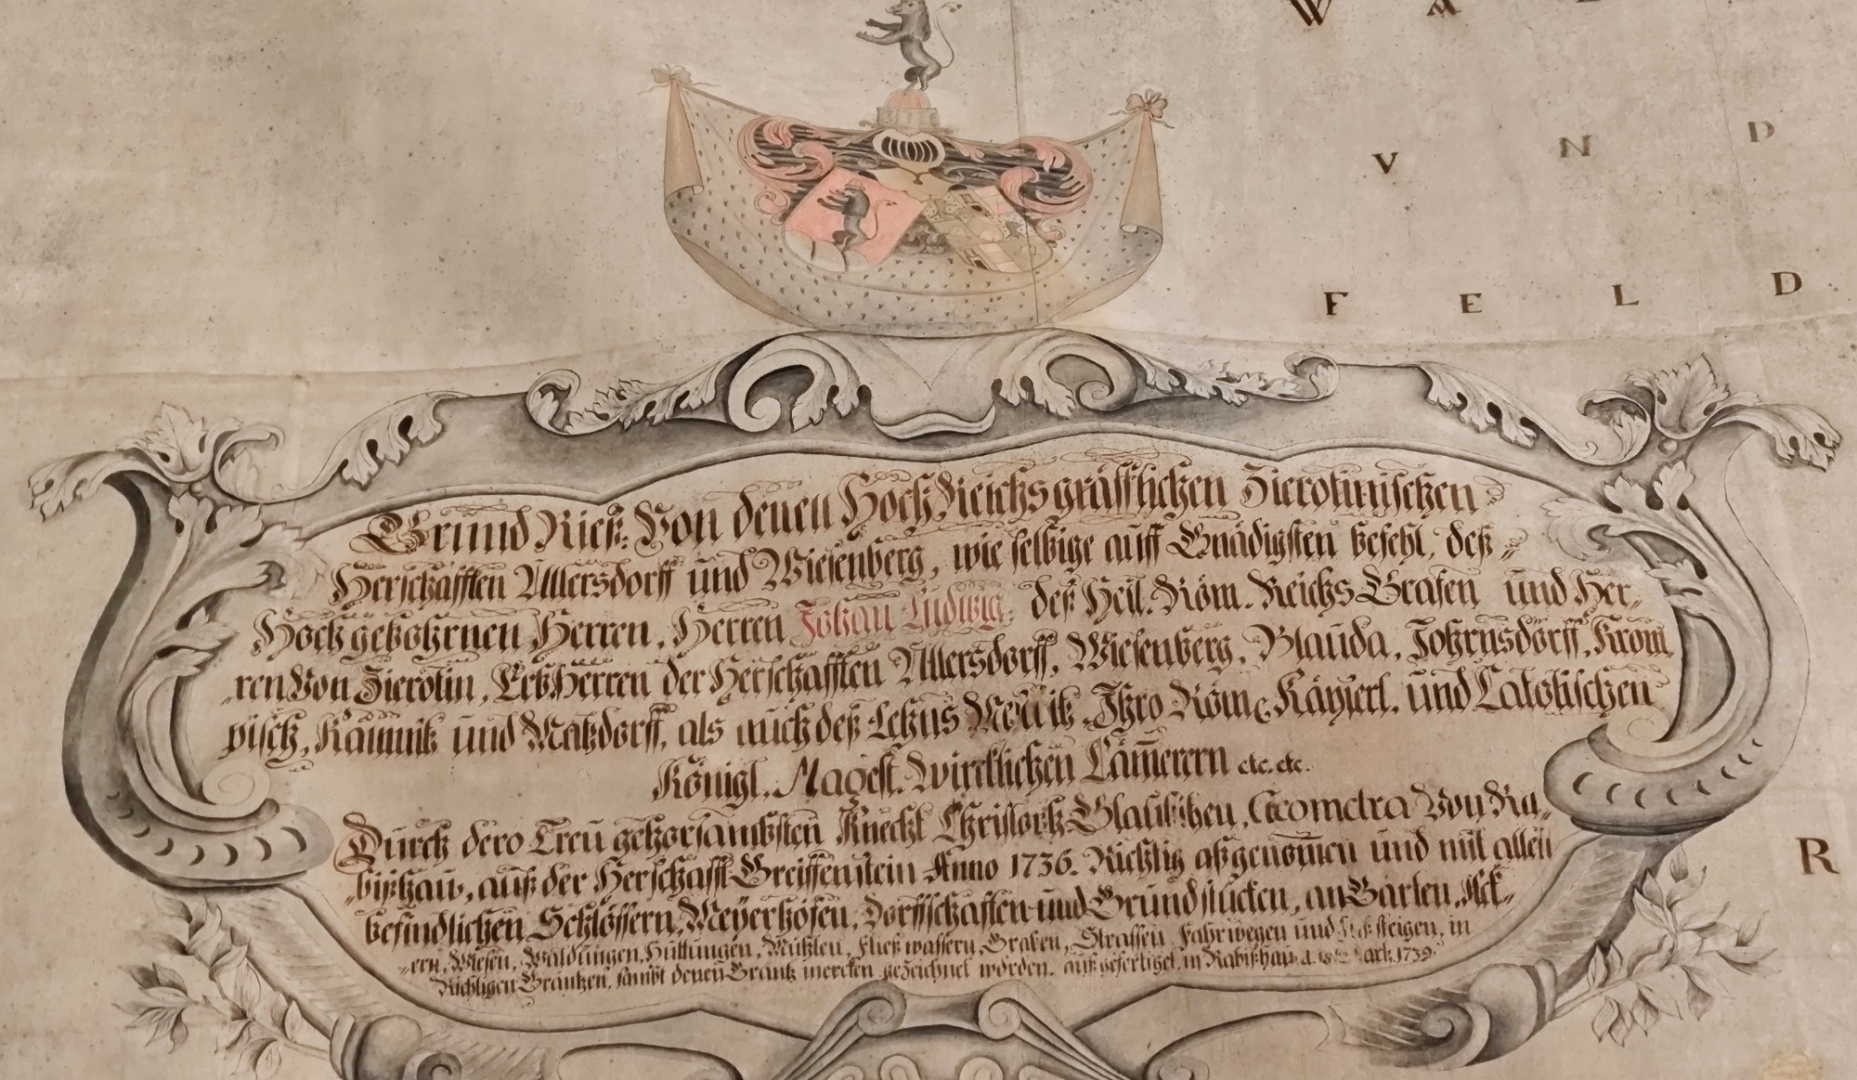 W A
V N D
F E L D
Grund Rieß. Von denen Hoch Reichsgräfflichen Zierotinischen
Herschafften Ullersdorff und Wiesenberg, wie selbige auff Gnädigsten befehl, deß
Hoch gebohrnen Herren, Herren Johan Ludwig, deß Heil. Röm. Reichs Grafen und Her-
ren Von Zierotin, Erb Herren der Herschafften Ullersdorff, Wiesenberg, Blauda, Johrnsdorff, Krom
pisch, Kaunitz und Matzdorff, als auch deß Lehns Ihro Röm. Käyserl. und Catolischen
Königl. Magest. Wircklichen Cam̄erern etc. etc.
Durch dero Treu gehorsambsten Knecht Christoph Geometra Von Ra-
bishau, auß der Herschafft Greiffenstein Anno 1736. Richtig abgenom̄en und mit allen
befindlichen Schlössern, Meyerhöfen, Dorffschafften und Grundstücken, an Gärten, Ack-
ern, Wiesen, Waldungen, Huttungen, Mühlen, fließ wassern, Graben, Strassen, Fahrwegen und steigen, in
Richtigen Gräntzen, sambt denen Gräntz mercken gezeichnet worden. auß gefertiget in Rabishau 1739.
R